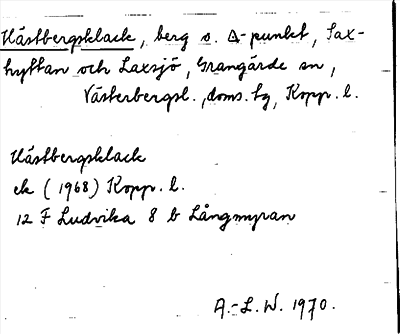 Hästbergsklack, berg o. Δ-punkt, Sax-
hyttan och Laxsjö, Grangärde sn,
Västerbergsl. doms. tg, Kopp. l.
Hästbergsklack
ek (1968) Kopp. l.
12 F Ludvika 8 b Långmyran
A.-L. W. 1970.